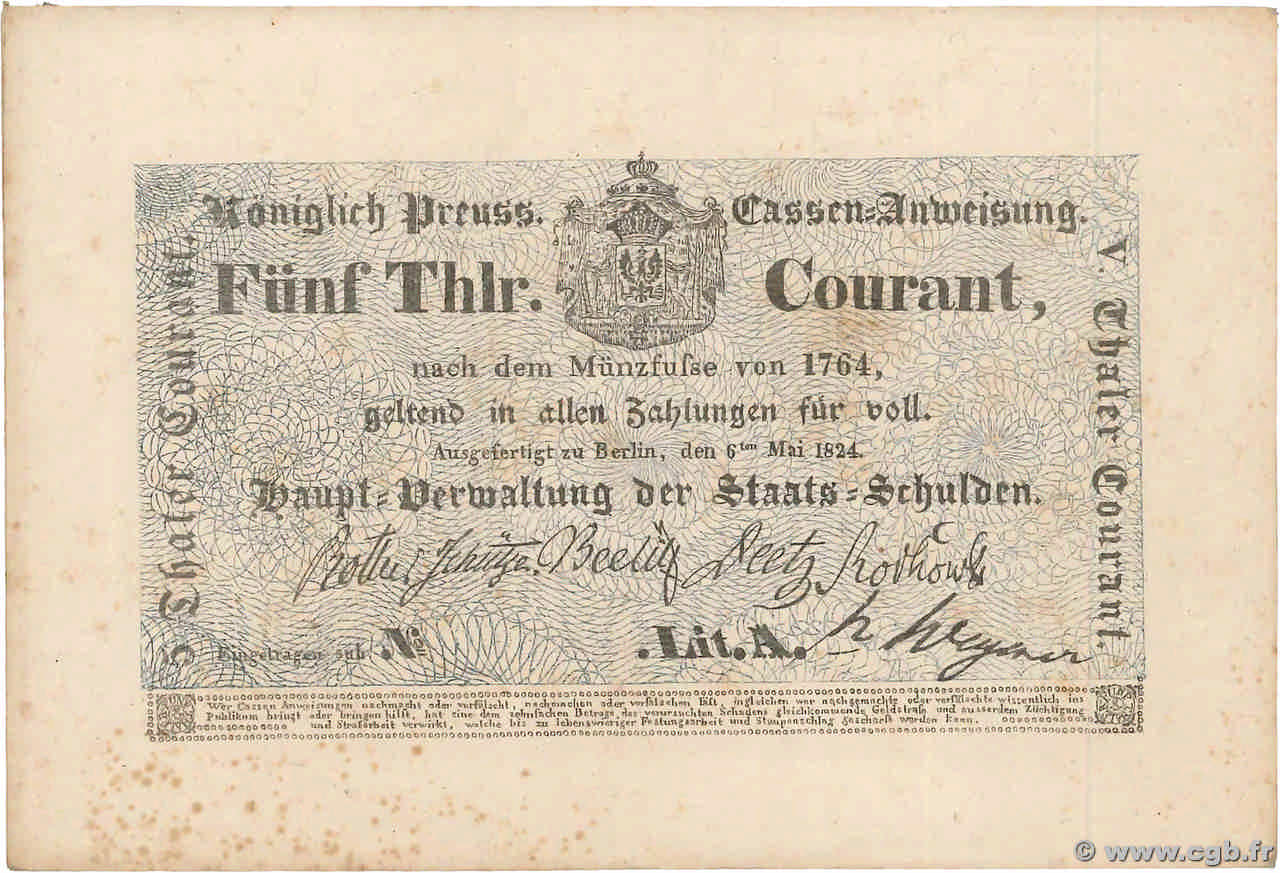 Königlich Preuss. Cassen=Anweisung.
Fünf Thlr. Courant,
nach dem Münzfuſse von 1764,
geltend in allen Zahlungen für voll.
Ausgefertigt zu Berlin, den 6ten Mai 1824.
Haupt=Verwaltung der Staats=Schulden.
Rother Schütze. Beelitz Deetz Rochow
Eingetragen sub .No .Lit.A.
5 Thaler Courant.
V. Thaler Courant.
Wer Cassen Anweisungen nachmacht oder verfälscht, nachmachen oder verfälschen läſst, ingleichen wer nachgemachte oder verfälschte wissentlich ins
Publikum bringt oder bringen hilft, hat eine dem zehnfachen Betrage des verursachten Schadens gleichkommende Geldstrafe und ausserdem Züchtigung
und Strafarbeit verwirkt, welche bis zu lebenswieriger Festungsarbeit und Staupenschlag geschärft werden kann.
© www.cgb.fr